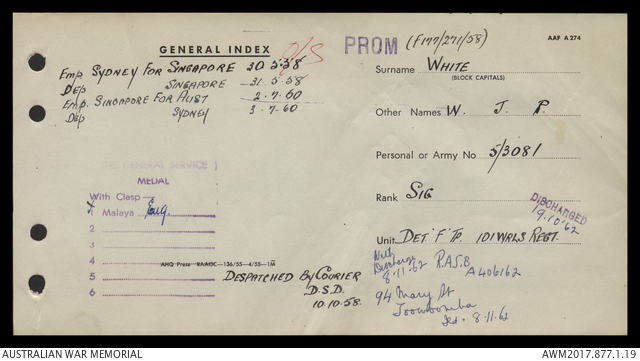 GENERAL INDEX
O/S
Emp SYDNEY FOR SINGAPORE 30 5.58
Dep SINGAPORE 31.5.58
Emp. SINGAPORE FOR AUST 2.7.60
Dep SYDNEY 3.7.60
THE GENERAL SERVICE
MEDAL
With Clasp
1 Malaya
2
3
4
5
6
AHQ Press RAAOC—136/55—4/55—1M
DESPATCHED BY COURIER
D.S.D.
10.10.58.
PROM (F177/271/58)
AAF A 274
Surname WHITE
(BLOCK CAPITALS)
Other Names W. J. P.
Personal or Army No 5/3081
Rank SIG
DISCHARGED
9.10.62
Unit DET 'F' TP. 101 WRLS REGT.
Discharge
8.11.62 R.A.S.B.
A406162
94 Mary St
Toowoomba
8.11.62
AUSTRALIAN WAR MEMORIAL
AWM2017.877.1.19